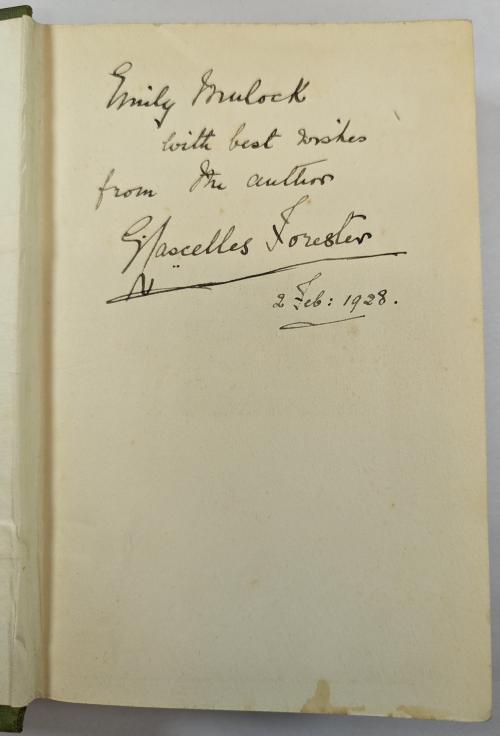 Emily Mulock
with best wishes
from the author
G. Lascelles Forester
2 Feb: 1928.